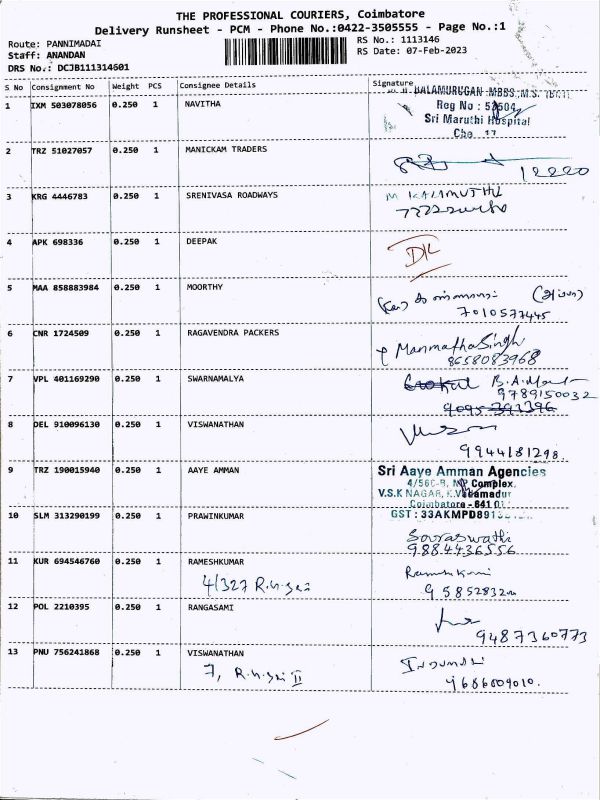 THE PROFESSIONAL COURIERS, Coimbatore
Delivery Runsheet - PCM - Phone No.:0422-3505555 - Page No.:1
Route: PANNIMADAI
RS No.: 1113146
Staff: ANANDAN
RS Date: 07-Feb-2023
DRS No.: DCJB111314601
S No Consignment No Weight PCS Consignee Details Signature
BALAMURUGAN MBBS.,M.S.
1 IXM 503078056 0.250 1 NAVITHA
Reg No :
Sri Maruthi Hospital
2 TRZ 51027057 0.250 1 MANICKAM TRADERS
3 KRG 4446783 0.250 1 SRENIVASA ROADWAYS M KALAMUTHU
4 APK 698336 0.250 1 DEEPAK
5 MAA 858883984 0.250 1 MOORTHY
7010577445
6 CNR 1724509 0.250 1 RAGAVENDRA PACKERS
Manmatha Singh
8658083968
7 VPL 401169290 0.250 1 SWARNAMALYA
9789150032
8 DEL 910096130 0.250 1 VISWANATHAN
9944181298.
9 TRZ 190015940 0.250 1 AAYE AMMAN Sri Aaye Amman Agencies
4/56C-B, Complex,
V.S.K NAGAR,
Coimbatore - 641
10 SLM 313290199 0.250 1 PRAWINKUMAR GST : 33AKMPD891
Saraswathi
9884436556
11 KUR 694546760 0.250 1 RAMESHKUMAR
4/327
12 POL 2210395 0.250 1 RANGASAMI
9487360773
13 PNU 756241868 0.250 1 VISWANATHAN
7, II
9686009010.